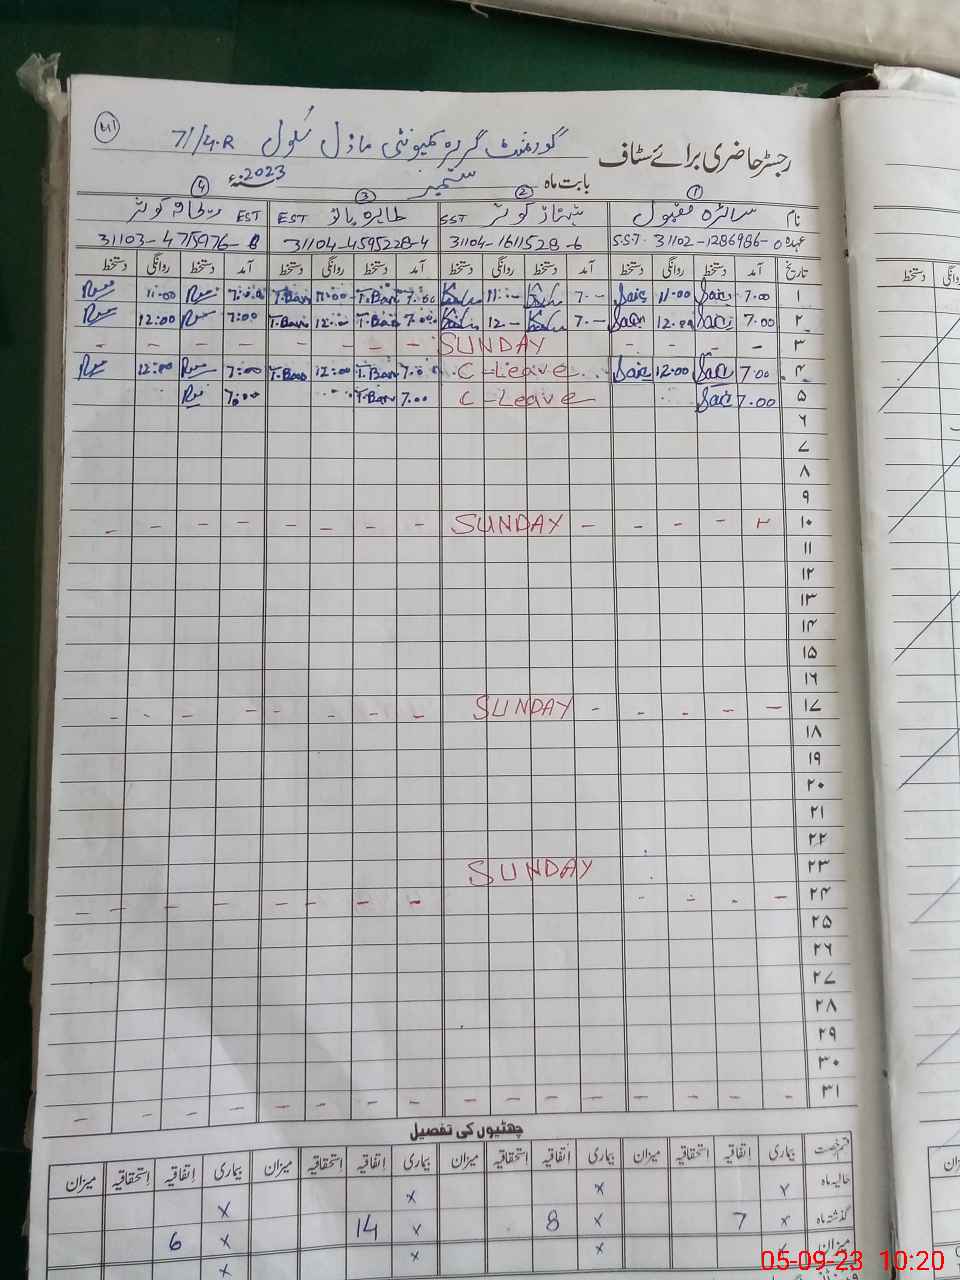 رجسٹر حاضری برائے سٹاف گورنمنٹ گرلز کمیونٹی ماڈل سکول 71/4.R
بابت ماہ ستمبر سنہ 2023ء
① ② ③ ④
نام سائرہ مقبول شہناز کوثر SST طاہرہ بانو EST ریحانہ کوثر EST
عہدہ SST 31102-1286986-0 31104-1611528-6 31104-4595228-4 31103-475976-8
تاریخ آمد دستخط روانگی دستخط آمد دستخط روانگی دستخط آمد دستخط روانگی دستخط آمد دستخط روانگی دستخط
۱ 7.00 11.00 7.- 11:- 7.00 T.Bano 11:00 T.Bano 7:00 11:00
۲ 7.00 12.00 7.- 12- 7:00 T.Bano 12:- T.Bano 7:00 12:00
۳ - - - - SUNDAY - - - - - - - -
۴ 7.00 12.00 C-Leave 7.00 T.Bano 12:00 T.Bano 7:00 12:00
۵ 7.00 C-Leave 7.00 T.Bano 7:00
۶
۷
۸
۹
۱۰ - - - - SUNDAY - - - - - - - -
۱۱
۱۲
۱۳
۱۴
۱۵
۱۶
۱۷ - - - - SUNDAY - - - - - - - -
۱۸
۱۹
۲۰
۲۱
۲۲
۲۳ SUNDAY
۲۴ - - - - - - - - - - - -
۲۵
۲۶
۲۷
۲۸
۲۹
۳۰
۳۱ - - - - - - - - - - - - - - - -
چھٹیوں کی تفصیل
قسم رخصت بیماری اتفاقیہ استحقاقیہ میزان بیماری اتفاقیہ استحقاقیہ میزان بیماری اتفاقیہ استحقاقیہ میزان بیماری اتفاقیہ استحقاقیہ میزان
حالیہ ماہ x x x x
گذشتہ ماہ x 7 x 8 x 14 x 6
میزان x x x x
05-09-23 10:20